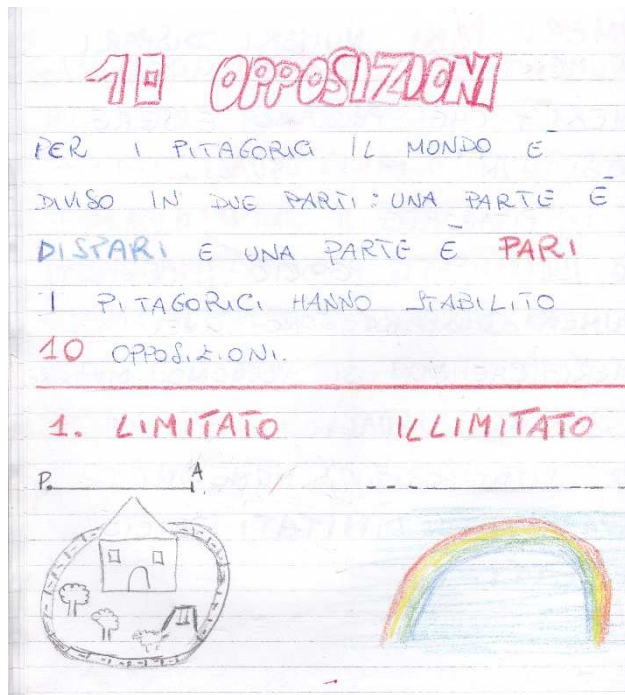 10 OPPOSIZIONI
PER I PITAGORICI IL MONDO È
DIVISO IN DUE PARTI: UNA PARTE È
DISPARI E UNA PARTE È PARI
I PITAGORICI HANNO STABILITO
10 OPPOSIZIONI.
1. LIMITATO ILLIMITATO
P. A